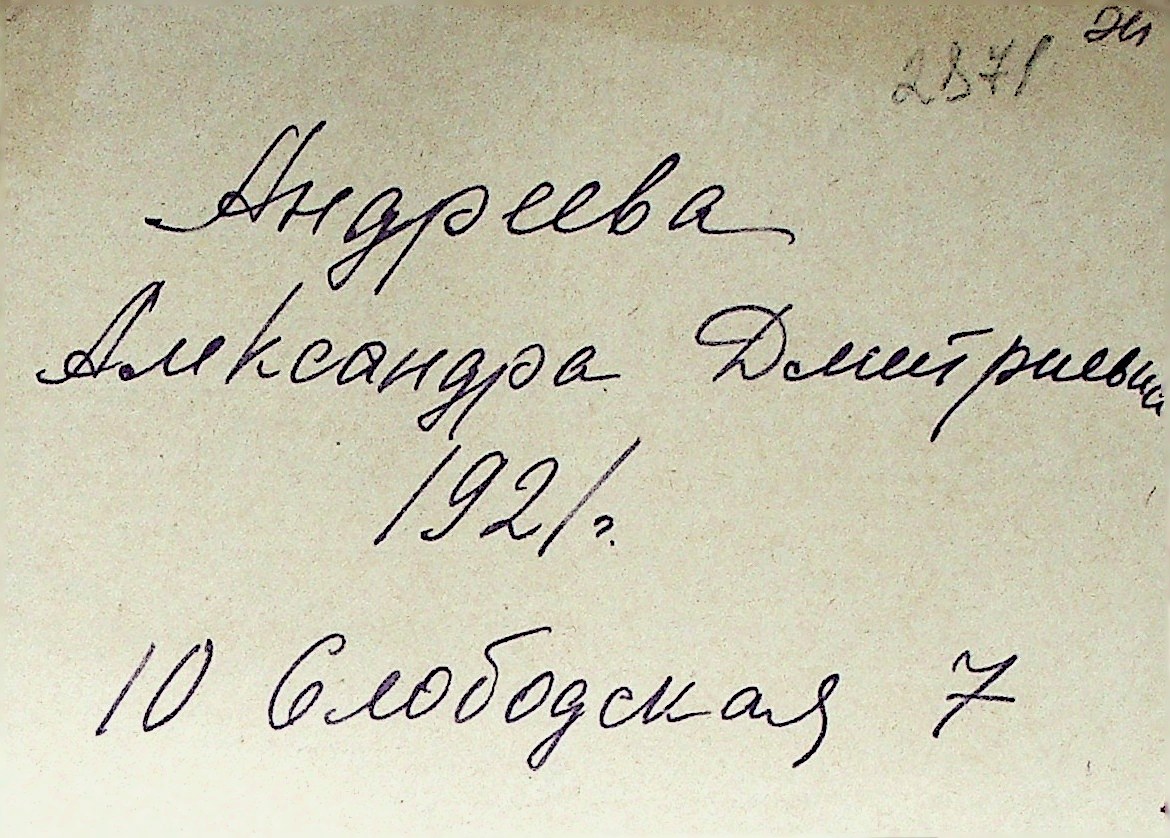 2871
Андреева
Александра Дмитриевна
1921 г.
10 Слободская 7